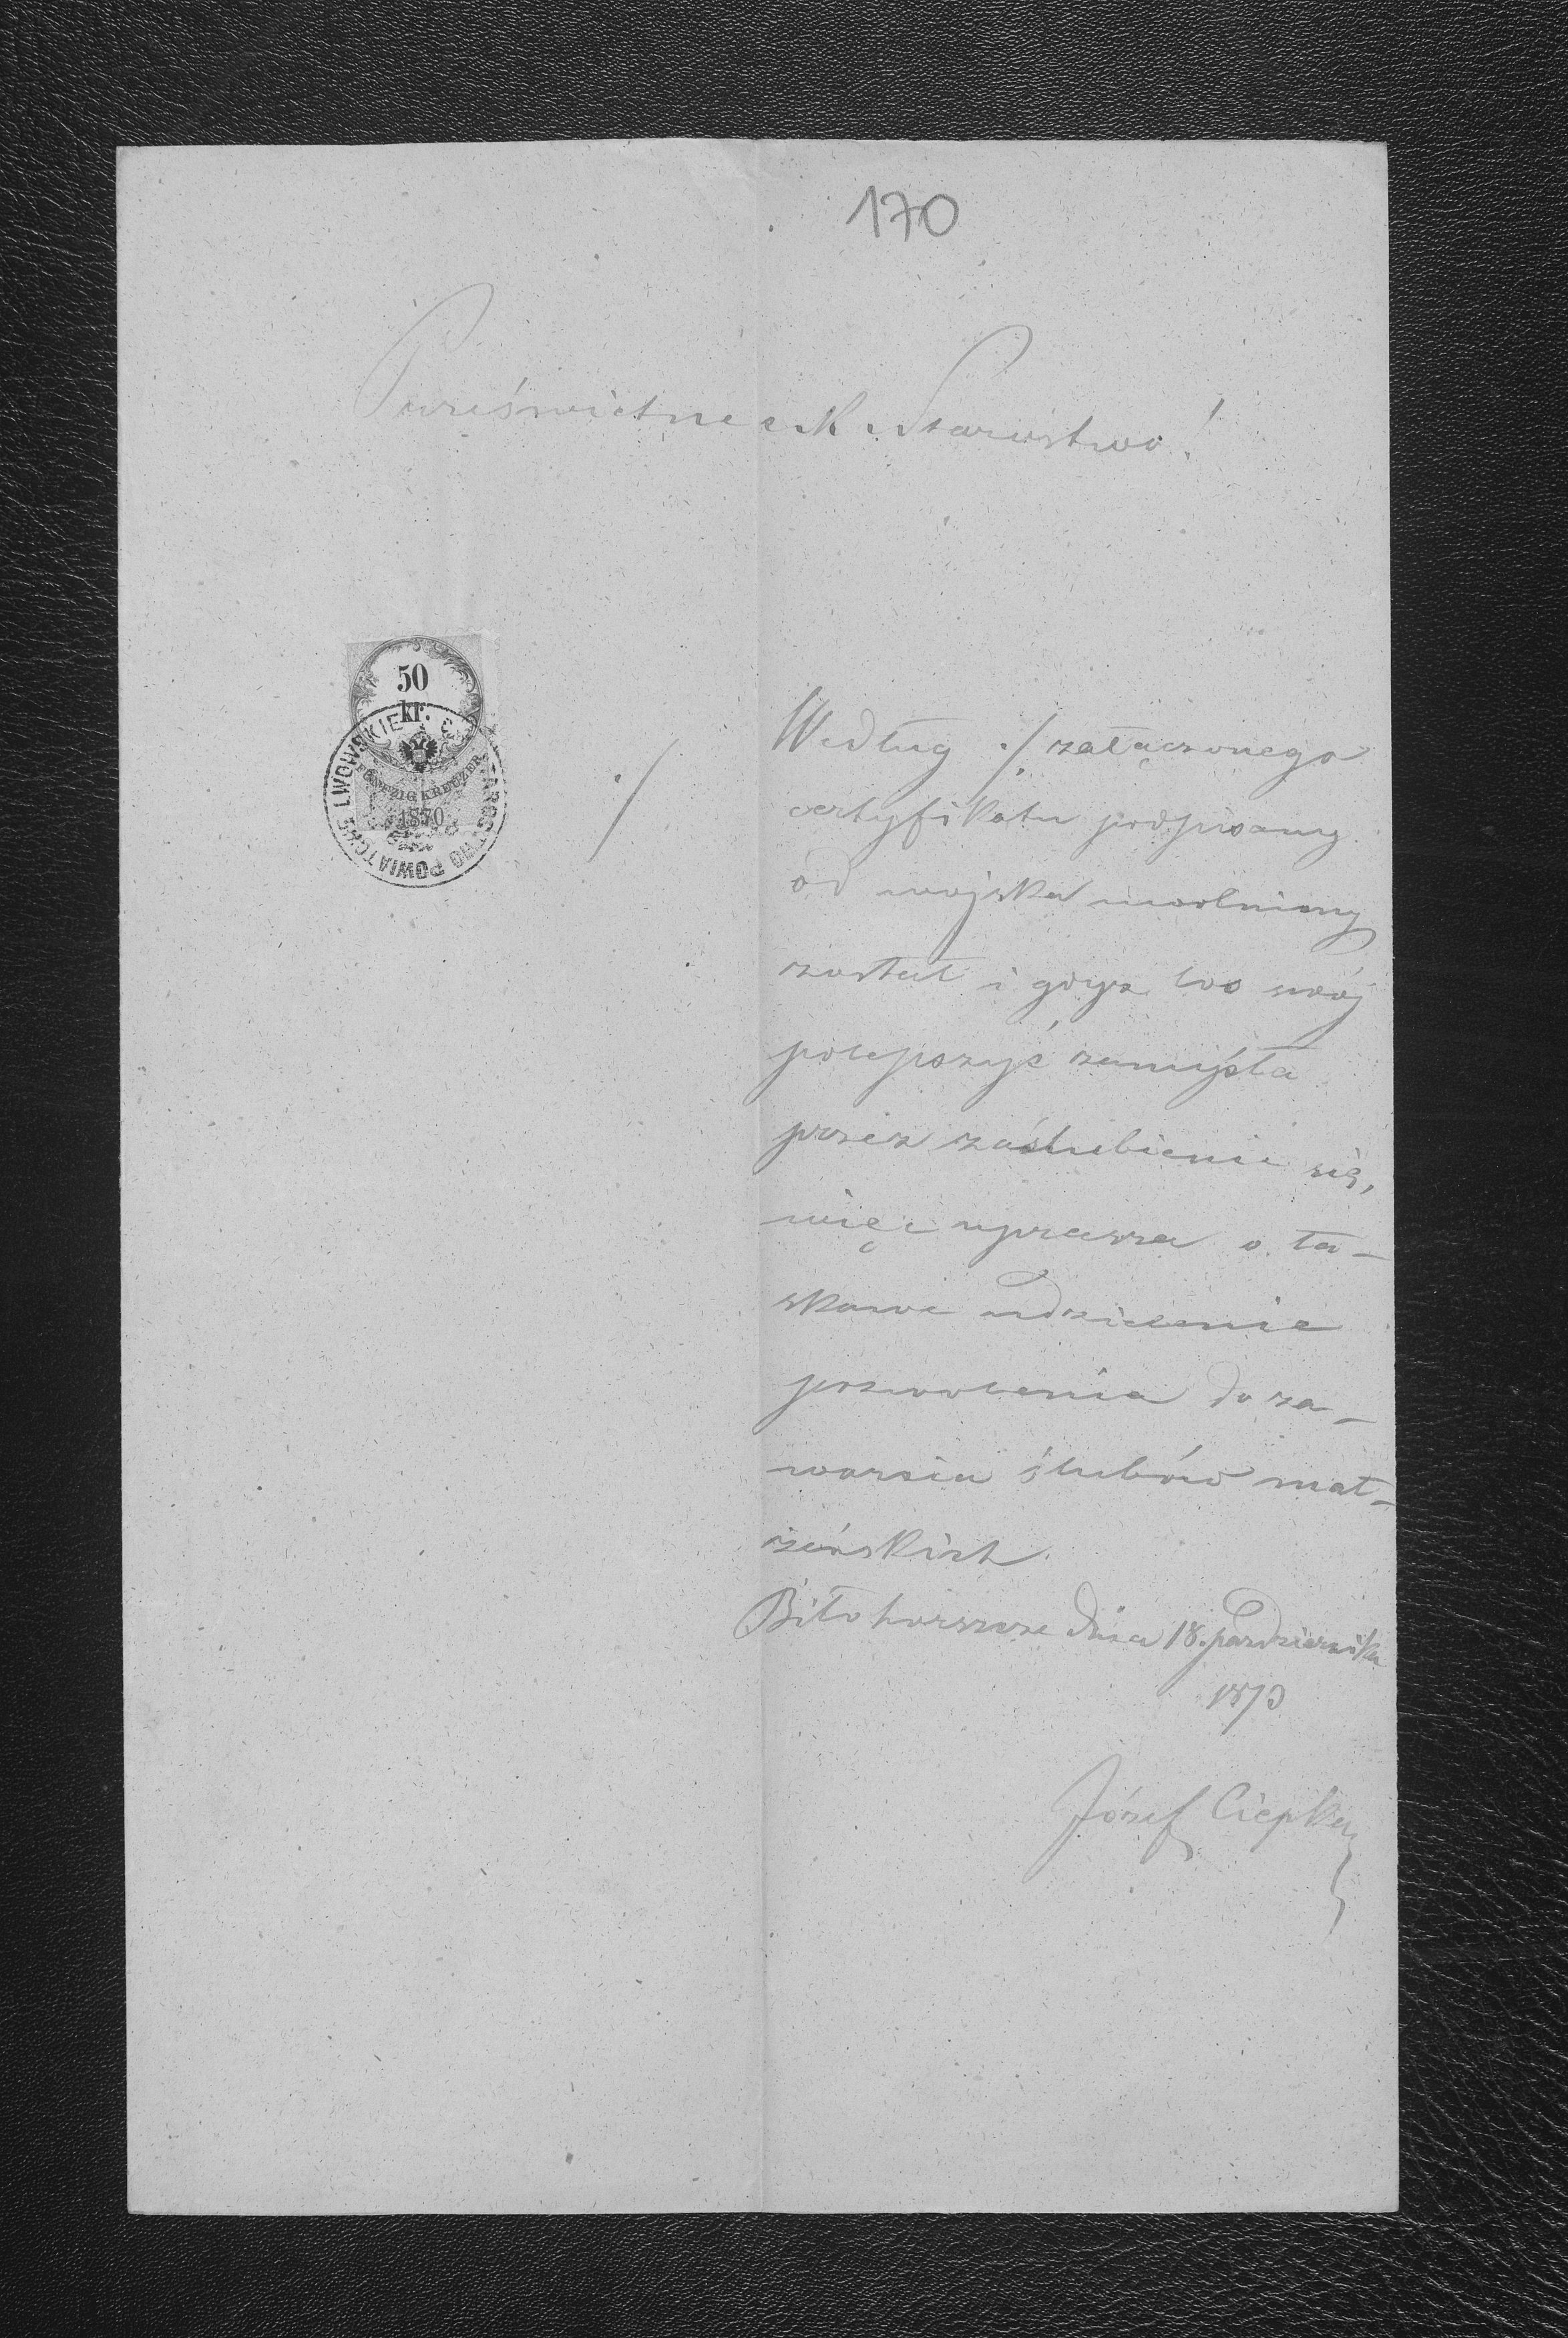 170
Prześwietne c. k. Starostwo!
50
kr.
FÜNFZIG KREUZER
1870
STAROSTWO POWIATOWE LWOWSKIE
./
Według ./. załączonego
certyfikatu podpisany
od wojska uwolniony
został i gdyż los swój
polepszyć zamyśla
przez zaślubienie się,
więc uprasza o ła-
skawe udzielenie
pozwolenia do za-
warcia ślubów mał-
żeńskich.
Biłohorszcze dnia 18. października
1873
Józef